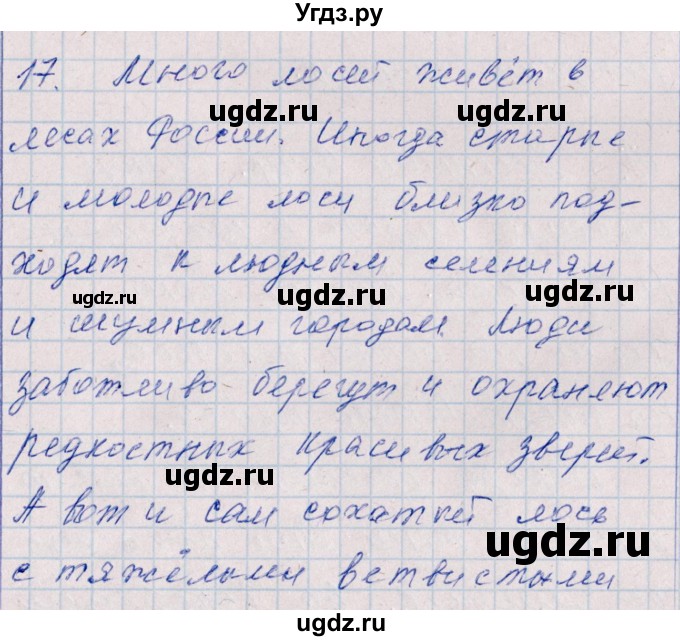 Угдз.ру
17. Много лосей живёт в
ugdz.ru ugdz.ru
лесах России. Иногда старые
и молодые лоси близко под-
ugdz.ru
ходят к людным селениям
ugdz.ru ugdz.ru
и шумным городам. Люди
ugdz.ru
заботливо берегут и охраняют
редкостных красивых зверей.
ugdz.ru ugdz.ru
А вот и сам сохатый лось
ugdz.ru
с тяжёлыми ветвистыми
ugdz.ru ugdz.ru